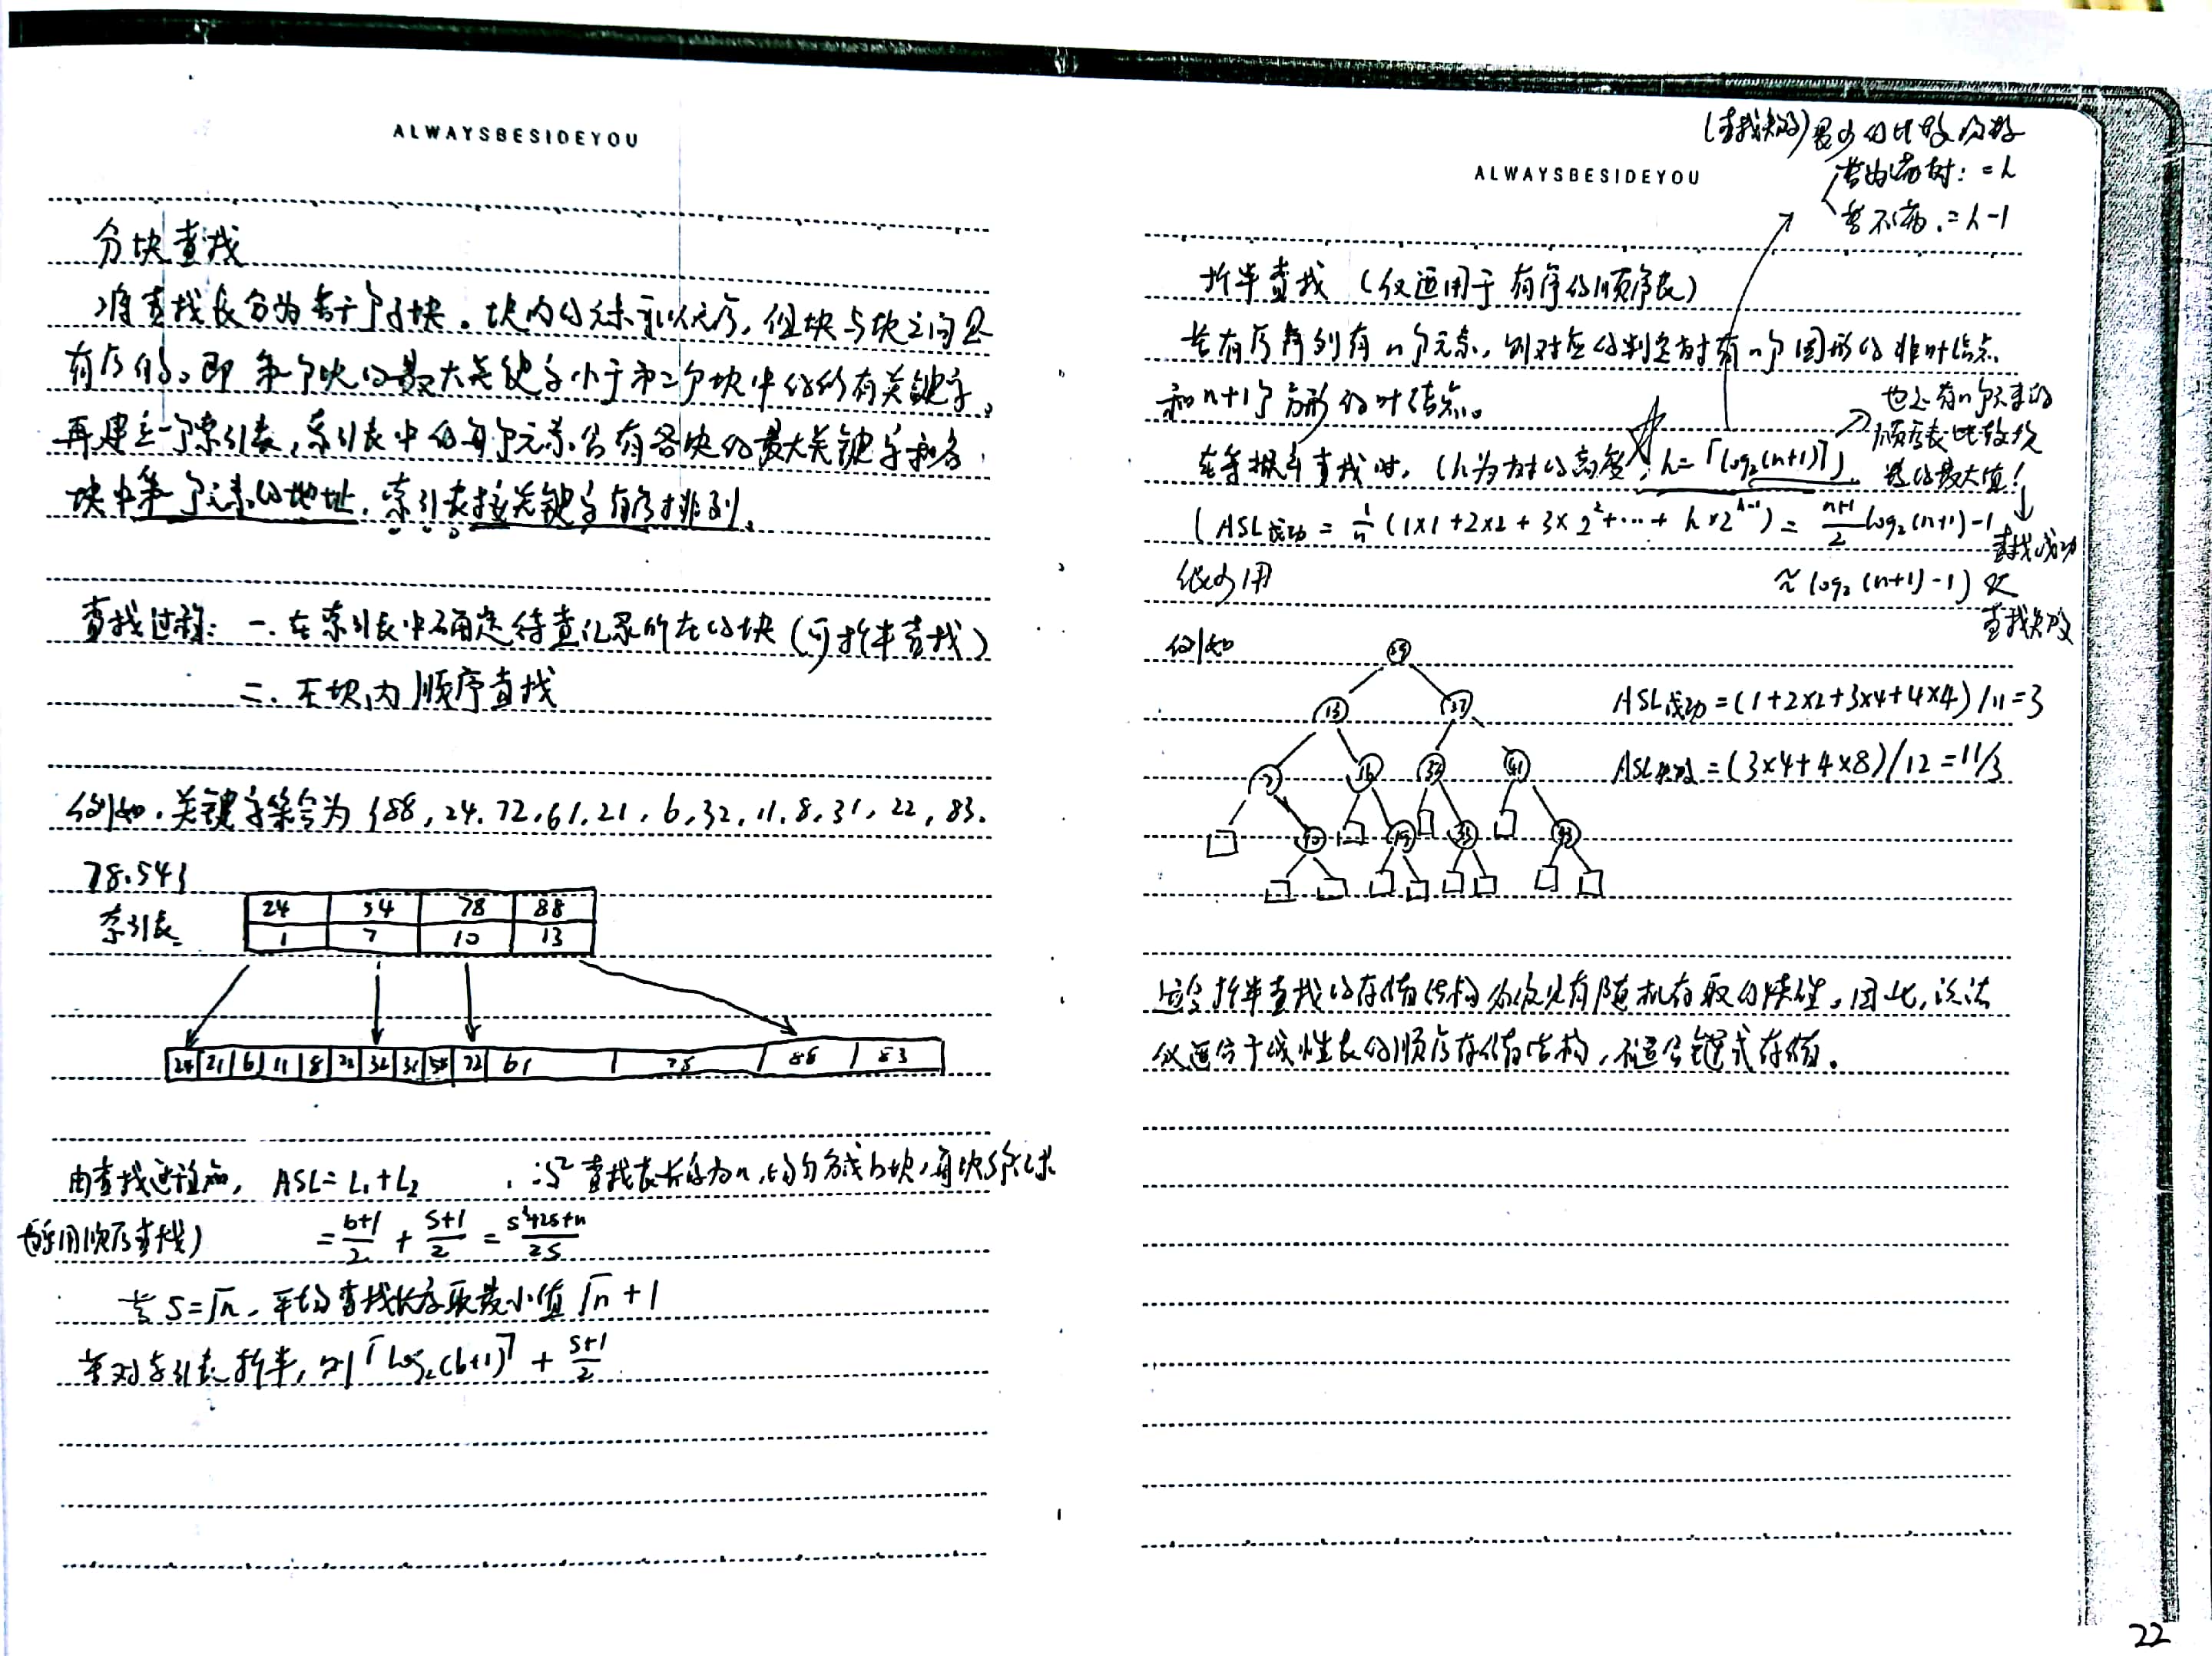 ALWAYSBESIDEYOU
分块查找
将查找表分为若干个子块。块内的元素可以无序，但块与块之间是
有序的。即第一个块的最大关键字小于第二个块中的所有关键字。
再建立一个索引表，索引表中的每个元素含有各块的最大关键字和各
块中第一个元素的地址，索引表按关键字有序排列。
查找过称：一.在索引表中确定待查记录所在的块（可折半查找）
二.在块内顺序查找
例如.关键字集合为{88，24.72，61，21，6，32，11，8，31，22，83.
78.54}
索引表
24 54 78 88
1 7 10 13
24 21 6 11 8 22 32 31 54 72 61 78 88 83
由查找过程知，ASL=L₁+L₂
查找表长度为n，均匀分成b块，每块s个记录
都用顺序查找）
= (b+1)/2 + (s+1)/2 = (s²+2s+n)/2s
若 S=√n，平均查找长度取最小值 √n+1
若对索引表折半，则⌈log₂(b+1)⌉ + (s+1)/2
ALWAYSBESIDEYOU
(查找失败)最少的比较次数
若为满树：=h
若不满.=h-1
折半查找（仅适用于有序的顺序表）
若有序序列有n个元素，则对应的判定树有n个圆形的非叶结点
和n+1个方形的叶结点。
也是有n个元素的
顺序表比较次
数的最大值！
在等概率查找时，（h为树的高度，h=⌈log₂(n+1)⌉）
(ASL成功 = 1/n (1×1+2×2+3×2²+⋯+h×2^(h-1)) = (n+1)/2 log₂(n+1)-1
查找成功
很少用
≈log₂(n+1)-1) 又
查找失败
例如
29
13 37
7 16 32 41
10 19 33 43
ASL成功=(1+2×2+3×4+4×4)/11=3
ASL失败=(3×4+4×8)/12=11/3
适合折半查找的存储结构必须具有随机存取的特性。因此，该法
仅适合于线性表的顺序存储结构，不适合链式存储。
22